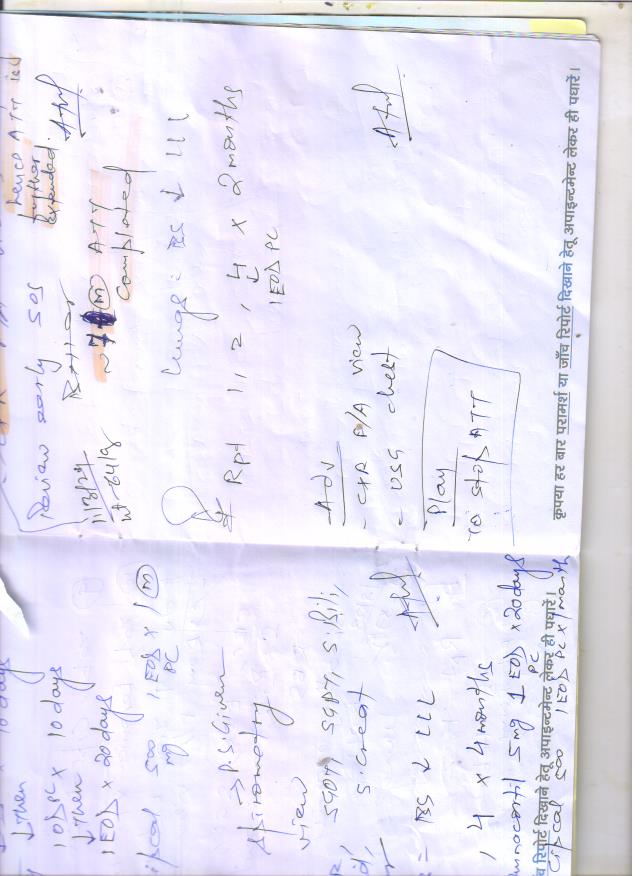 ↓ then
1OD PC x 10 days
↓ then
1EOD x 20 days
500 mg 1EOD PC x 1 (M)
Spirometry → P.S. Given
view
SGOT, SGPT, S. Bili,
S. Creat
= BS ↓ LLL
, 4 x 4 months
5mg 1 EOD PC x 20 days
500 1EOD PC x 1 month
रिपोर्ट दिखाने हेतू अपाइन्टमेन्ट लेकर ही पधारें।
hence ATT is
further
extended.
Review early SOS
11/3/24
wt - 64 kg
Better
~ 7 (M) ATT
completed
Lungs = BS ↓ LLL
Rpt 1, 2, 4 x 2 months
↓
1EOD PC
Adv
- CXR P/A view
- USG chest
Plan
to stop ATT
कृपया हर बार परामर्श या जाँच रिपोर्ट दिखाने हेतू अपाइन्टमेन्ट लेकर ही पधारें।